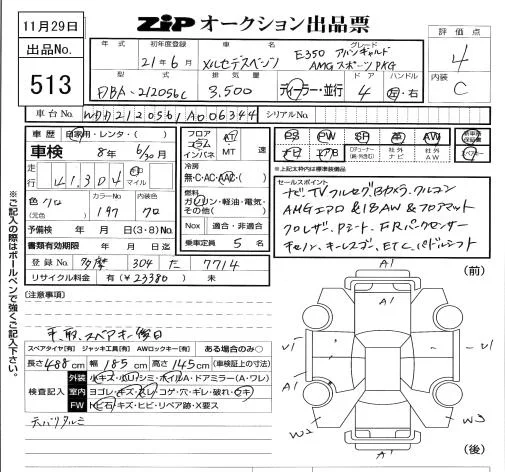 11月29日
ZiP オークション出品票
評価点
4
内装
C
出品No.
513
年式
初年度登録
21年6月
車名
メルセデスベンツ
グレード
E350 アバンギャルド
AMG スポーツPKG
型式
DBA-212056C
排気量
3,500
ディーラー・並行
ドア
4
ハンドル
左・右
車台No.
WDD2120561A006344
シリアルNo.
車歴 自家用・レンタ・( )
車検 8年 6/30月
走行
41,304
km マイル
色
(元色)
クロ
カラーNo.
197
内装色
クロ
予備検 年 月 日(3・8)No.
書類有効期限 年 月 日迄
登録No. 多摩 304 た 7714
リサイクル料金 有(¥23380) 未
フロア
コラム
インパネ
AT
MT
速
冷房
無・C・AC・AAC( )
燃料
ガソリン・軽油・電気・
その他( )
Nox 適合・非適合
乗車定員 5 名
PS PW SR 革 AW
ABS エアB
TVチューナー
(純・外含む)
社外
ナビ
社外
AW
新車時
保証書
※上記太枠内は標準装備品
セールスポイント
ナビTVフルセグBカメラクルコン
AMGエアロ&18AW&フロアマット
クロレザー、Pシート、F.Rパークセンサー
キセノン、キーレスゴー、ETC、パドルシフト
※ご記入の際はボールペンで強くご記入下さい。
[注意事項]
手、取、スペアキー後日
スペアタイヤ[有] ジャッキ工具[有] AWロックキー[有] ある場合のみ〇
長さ488cm 幅185cm 高さ145cm (車検証上の寸法)
検査記入
外装 小キズ・小ハシミ・ホイルA・ドアミラー(A・ワレ)
室内 ヨゴレ・キズ・スレ・コゲ・穴・ギレ・破れ・ウキ
FW トビ石・キズ・ヒビ・リペア跡・X要ス
天バリタルミ
(前)
A1
A1
U1
U1
A1
W2
W3
A1
(後)